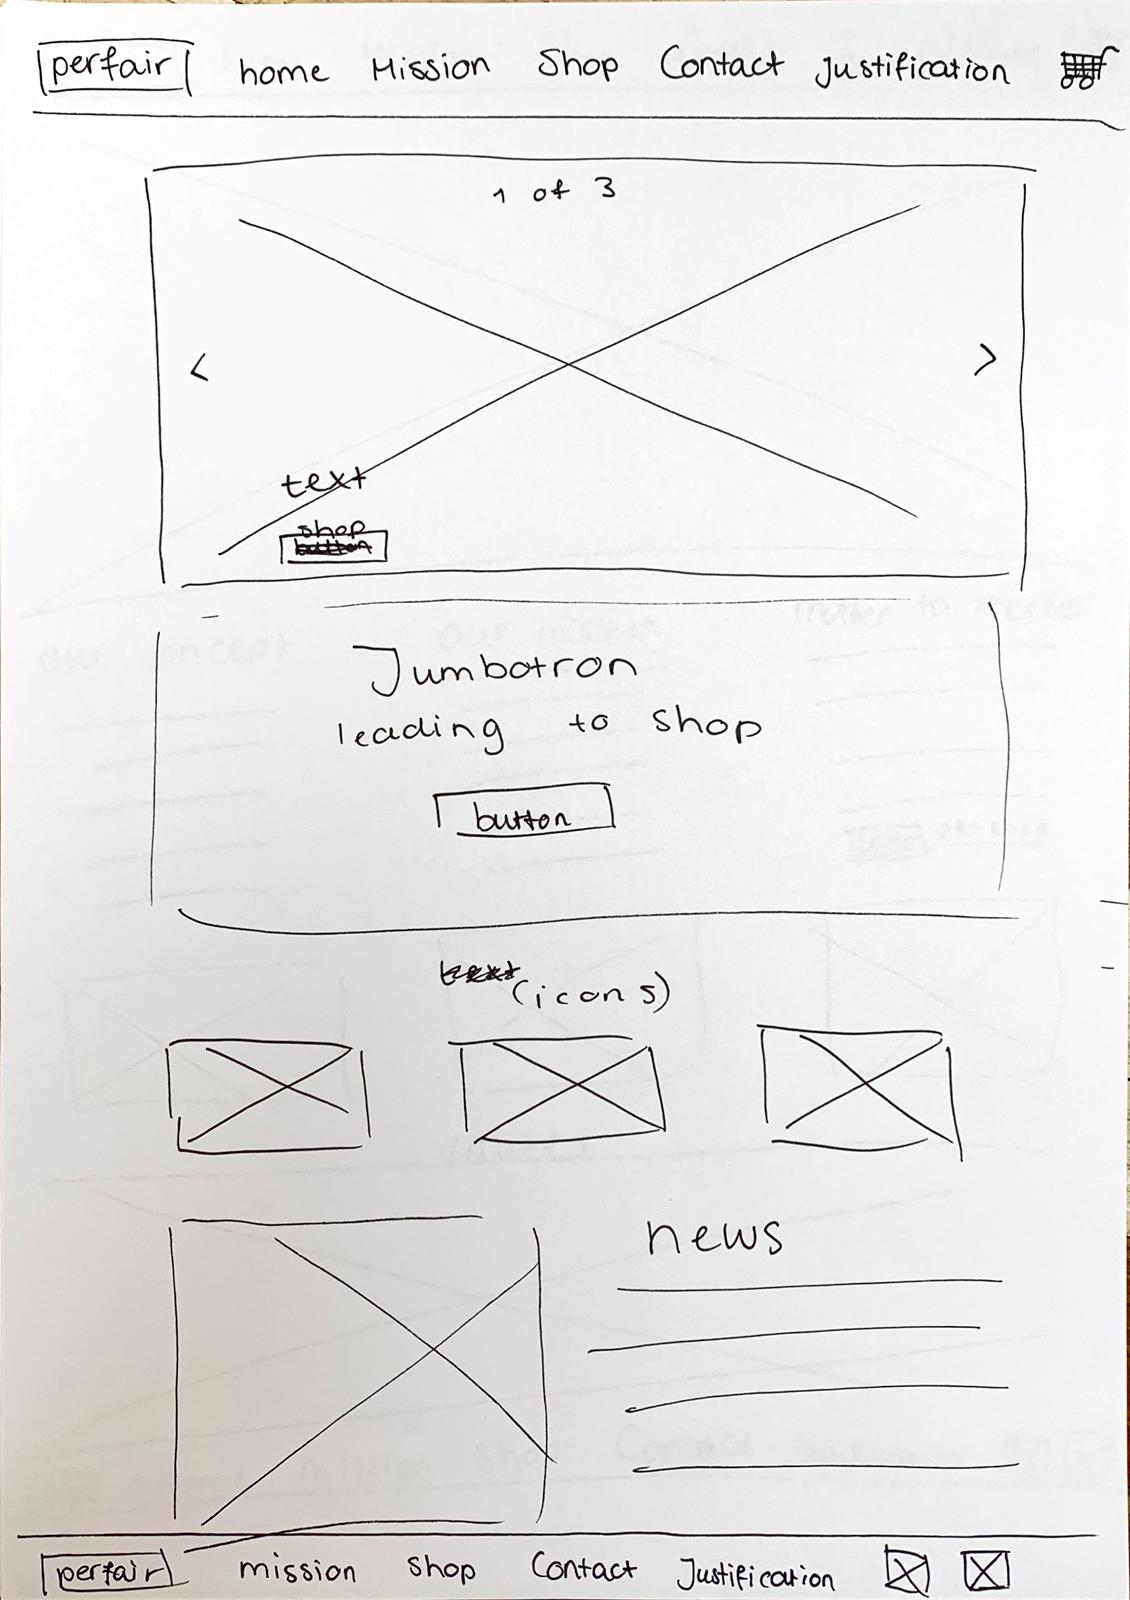 perfair home Mission Shop Contact Justification
1 of 3
< >
text
shop
button
Jumbotron
leading to shop
button
text (icons)
news
perfair mission shop Contact Justification